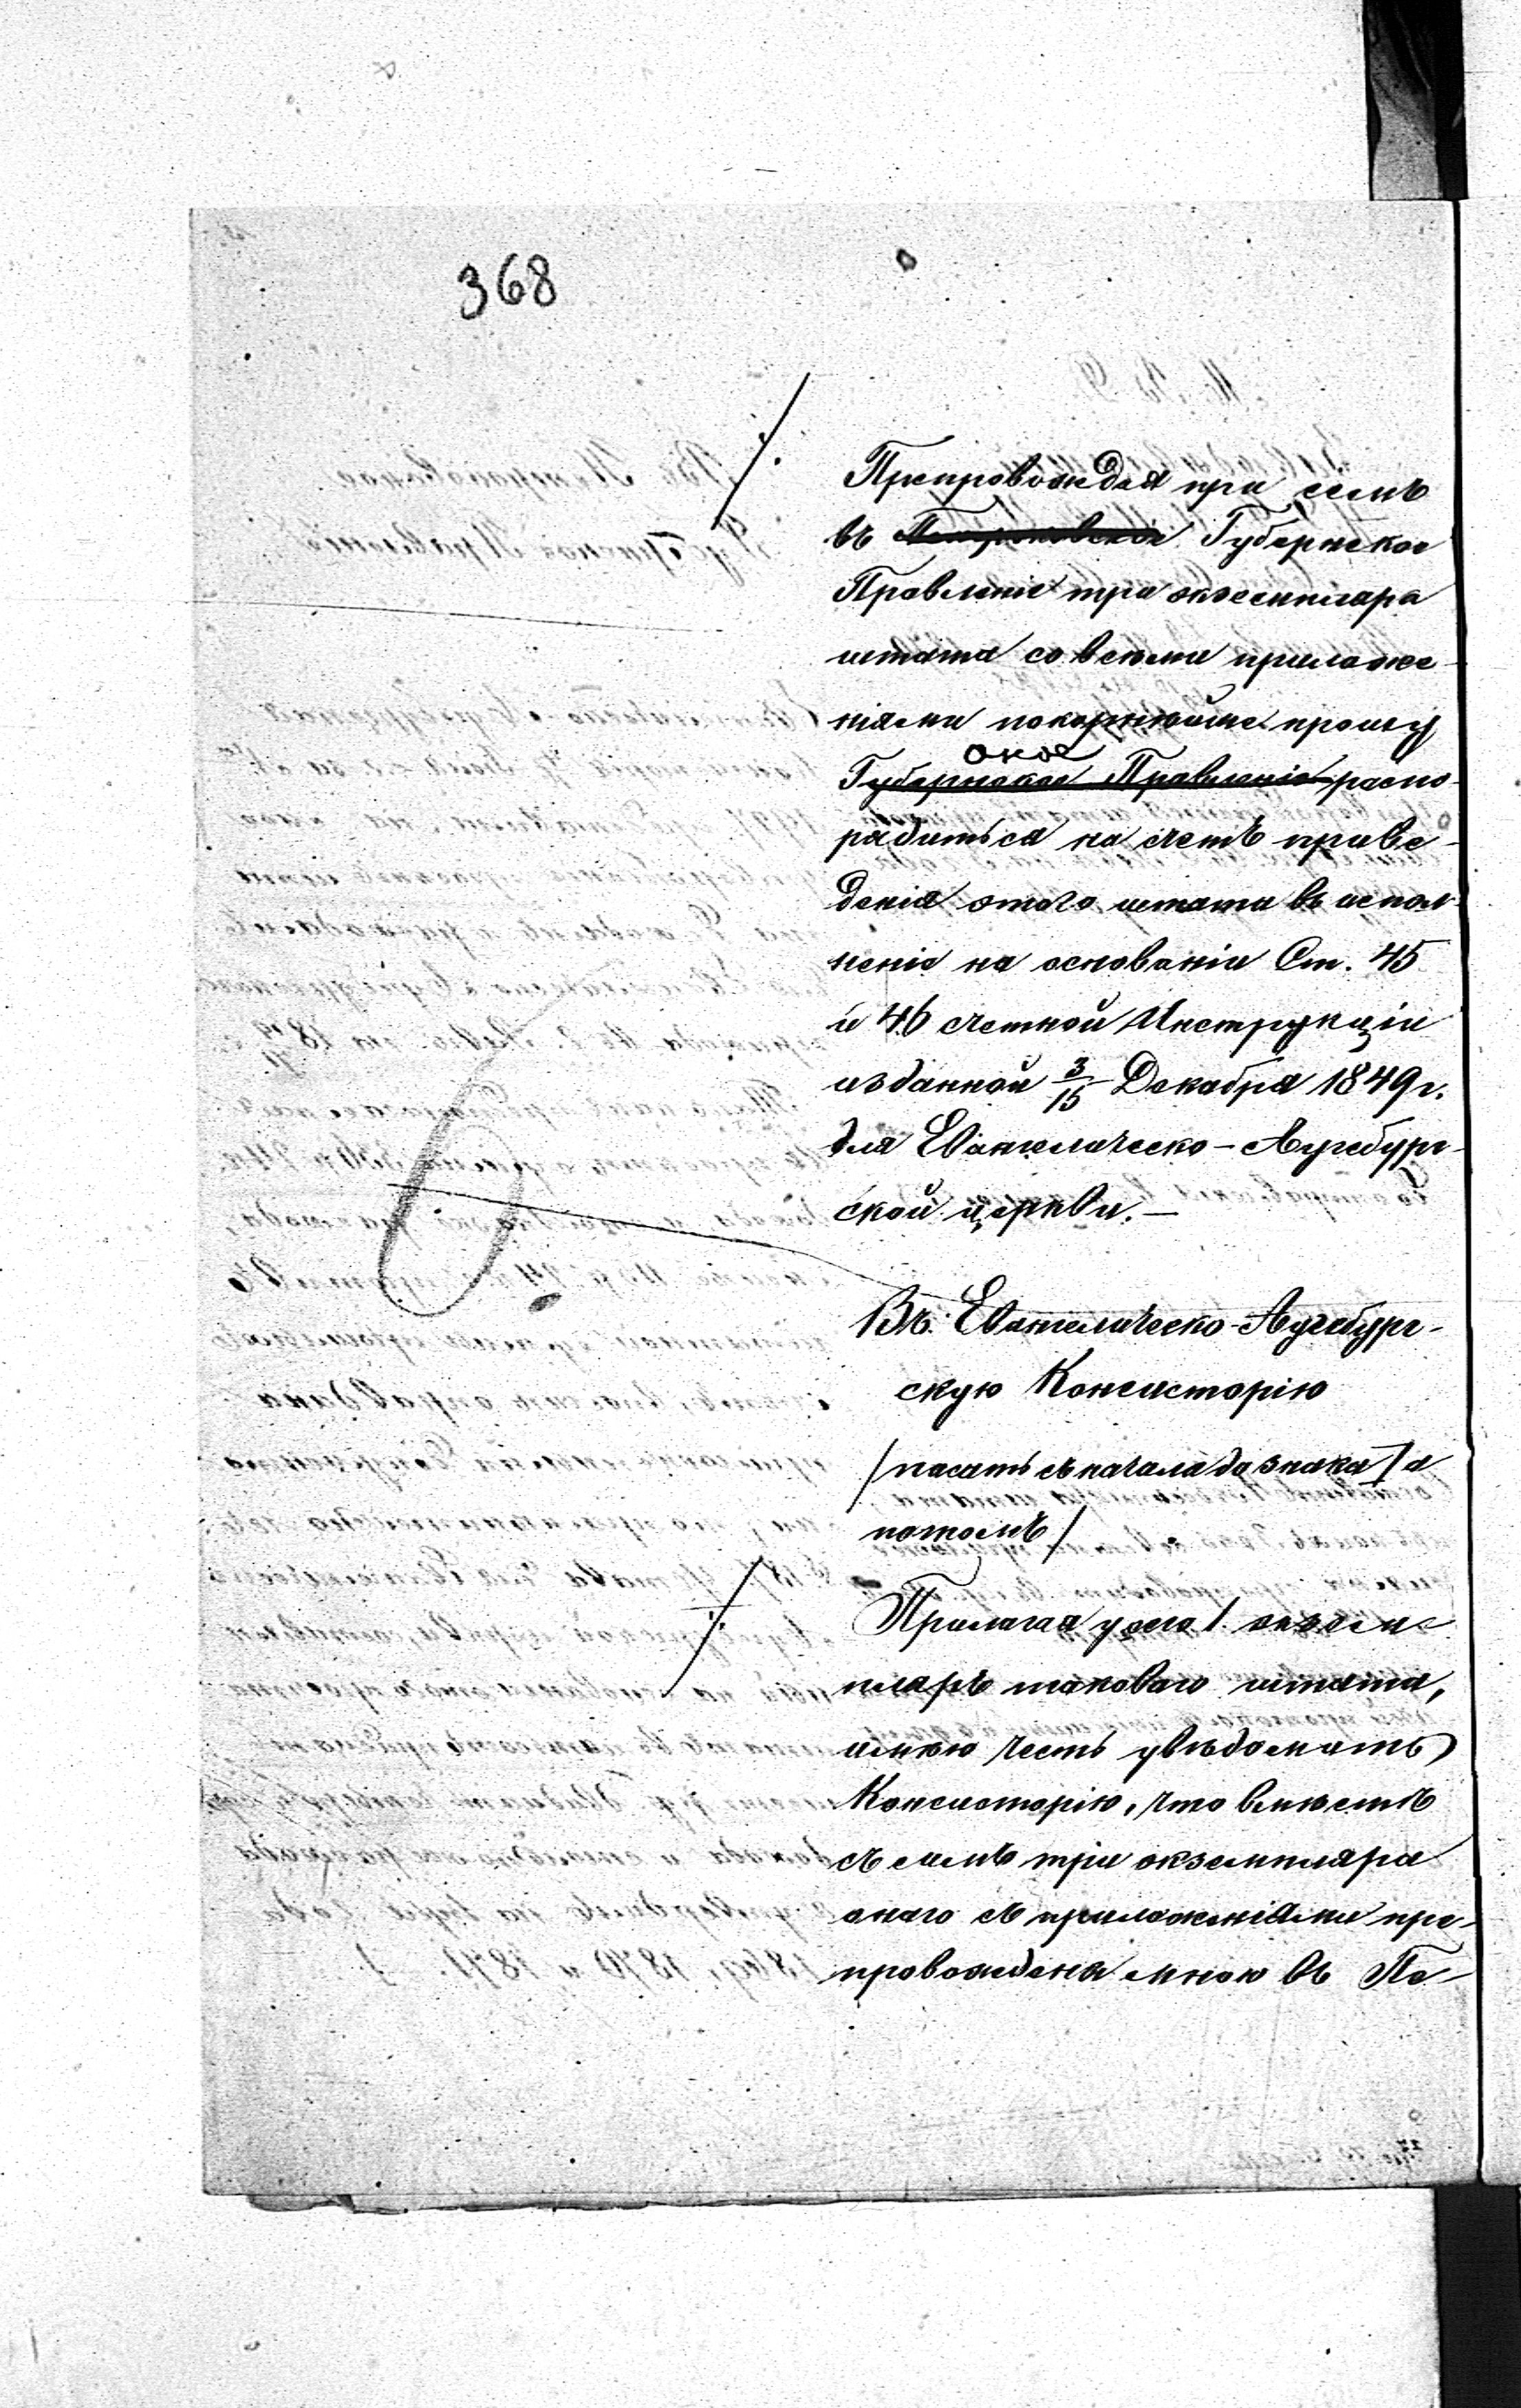 368
Препровождая при семъ
въ Петроковское Губернское
Правленіе три экземпляра
штата со всеми приложе-
ніями покорнѣйше прошу
оное
Губернское Правленіе распо-
рядиться на счетъ приве-
денія этого штата въ испол-
неніе на основаніи Ст. 45
и 46 счетной Инструкціи
изданной 3/15 Декабря 1849 г.
для Евангелическо-Аугсбург-
ской церкви.—
Въ Евангелическо-Аугсбург-
скую Консисторію
/писать съ начала до знака / а
потомъ/
Прилагая у сего 1 экзем-
пляръ таковаго штата,
имѣю честь увѣдомить
Консисторію, что вмѣстѣ
съ симъ три экземпляра
онаго съ приложеніями пре-
провождены мною въ Пе-